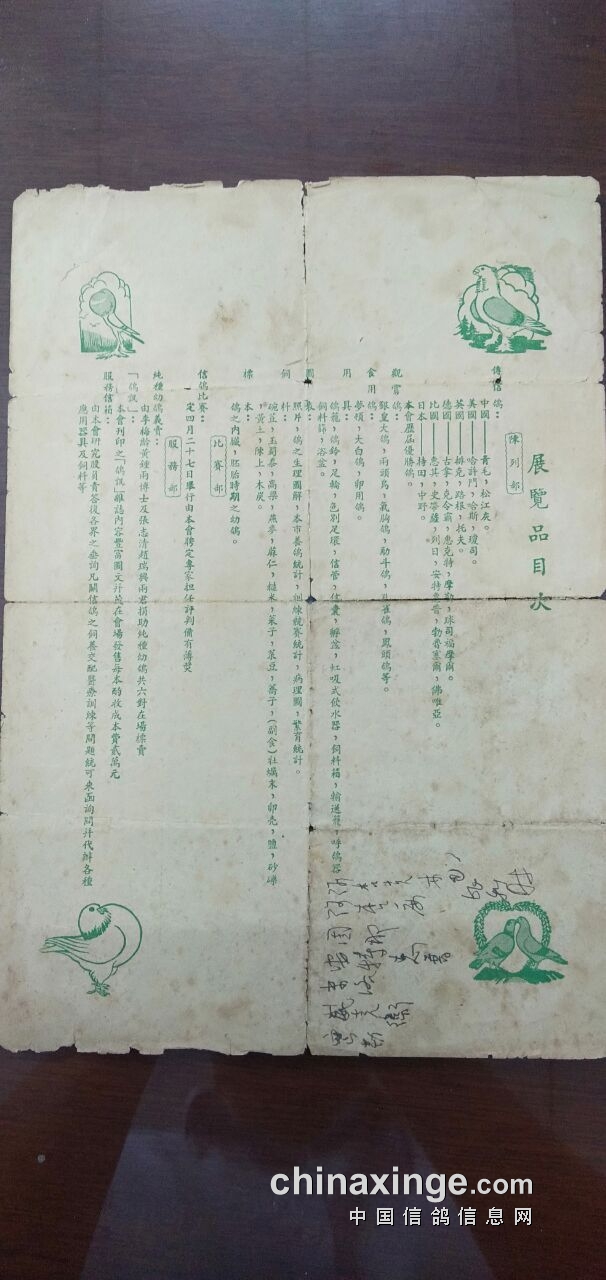 展覽品目次
陳列部
傳信鴿：
中國——青毛，松江灰。
美國——哈許門，哈斯，瓊司。
英國——排克，路根，托夫。
德國——古拿，克令霸，惠克特，摩勒，球司福學爾。
比國——惠其，史蒂薩，列日，安特惠普，勃魯塞爾，佛唯亞。
日本——持田，中野。
本會歷屆優勝鴿。
觀賞鴿：
銀皇大鴿，兩頭烏，氣胸鴿，觔斗鴿，孔雀鴿，鳳頭鴿等。
食用鴿：
夢頓，大白鴿，卵用鴿。
用具：
鴿籠，鴿鈴，足輪，色別足環，信管，信囊，孵盆，虹吸式飲水器，飼料箱，輸送籠，呼鴿器
飼料篩，浴盆。
圖表：
照片，鴿之生理圖解，本市養鴿統計，訓練競賽統計，病理圖，繁育統計。
飼料：
豌豆，玉蜀黍，高梁，燕麥，蔴仁，糙米，菜子，菉豆，蒿子，（副食）牡蠣末，卵壳，鹽，砂礫
，黃土，陳土，木炭。
標本：
鴿之內臟，胚胎時期之幼鴿。
比賽部
信鴿比賽：
定四月二十七日舉行由本會聘定專家担任評判備有薄獎
服務部
純種幼鴿義賣：
由李梅齡黃鍾兩博士及張志清趙瑞興兩君捐助純種幼鴿共六對在場標賣
「鴿訊」：
本會刊印之「鴿訊」雜誌內容豐富圖文幷茂在會場發售每本酌收成本費貳萬元
服務信箱：
由本會研究股負責答復各界之垂詢凡關信鴿之飼養交配醫療訓練等問題統可來函詢問幷代辦各種
應用器具及飼料等
chinaxinge.com
中国信鸽信息网